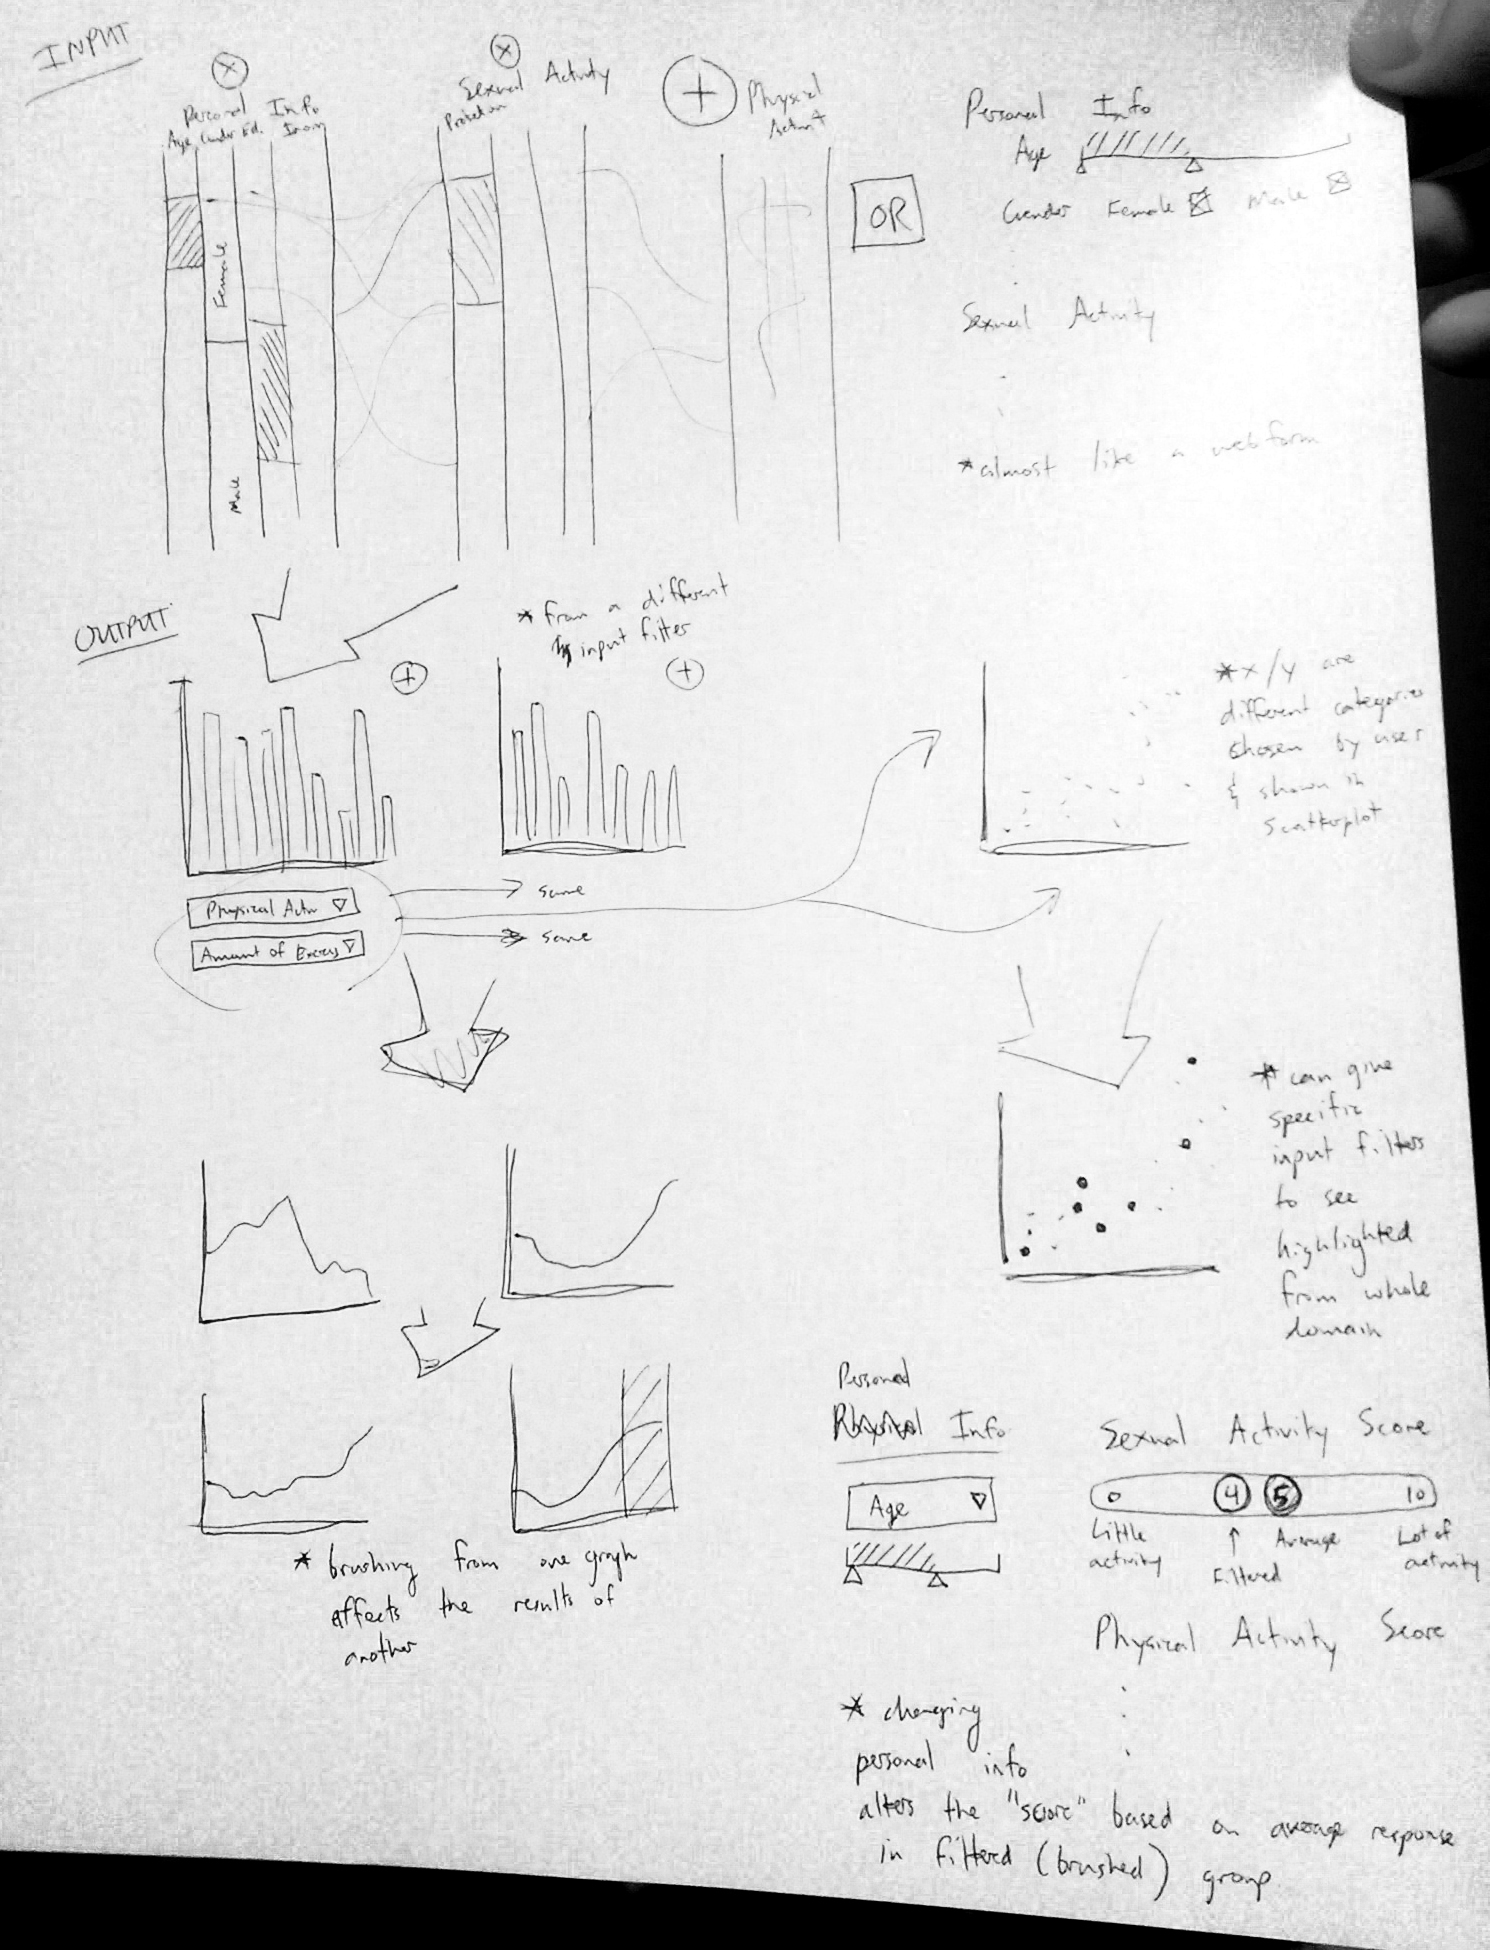 INPUT
Personal Info
Age Gender Ed.
Sexual Activity
Protection
Physical
Female
Male
OR
Personal Info
Age
Gender Female Male
Sexual Activity
*almost like a webform
OUTPUT
* from a different
input filter
Physical Activ
Amount of
same
same
* x/y are
different categories
chosen by user
& shown in
scatterplot
* can give
specific
input filters
to see
highlighted
from whole
domain
* brushing from one graph
affects the results of
another
Personal
Info
Age
Sexual Activity Score
0 4 5 10
Little
activity
Filtered
Average
Lot of
activity
Physical Activity Score
* changing
personal info
alters the "score" based on average response
in filtered (brushed) group